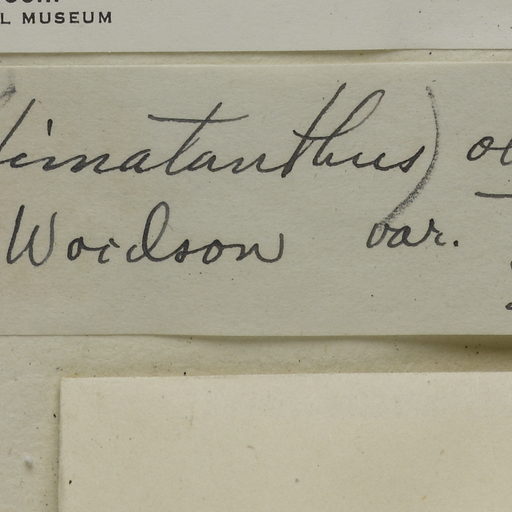 L MUSEUM
Himatanthus)
Woodson var.